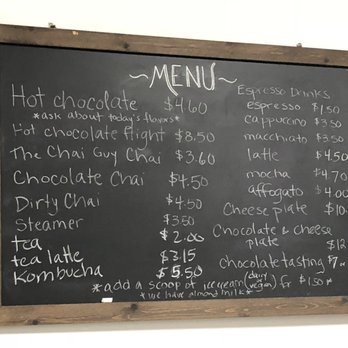 ~MENU~
Hot chocolate $4.60
*ask about today's flavors*
Hot chocolate flight $8.50
The Chai Guy Chai $3.60
Chocolate Chai $4.50
Dirty Chai $4.50
Steamer $3.50
tea $2.00
tea latte $3.15
Kombucha $5.50
Espresso Drinks
espresso $1.50
cappuccino $3.50
macchiato $3.50
latte $4.50
mocha $4.70
affogato $4.00
Cheese plate $10.
Chocolate & cheese
plate $12
Chocolate tasting $7.
*add a scoop of ice cream (dairy/vegan) for $1.50*
*we have almond milk*